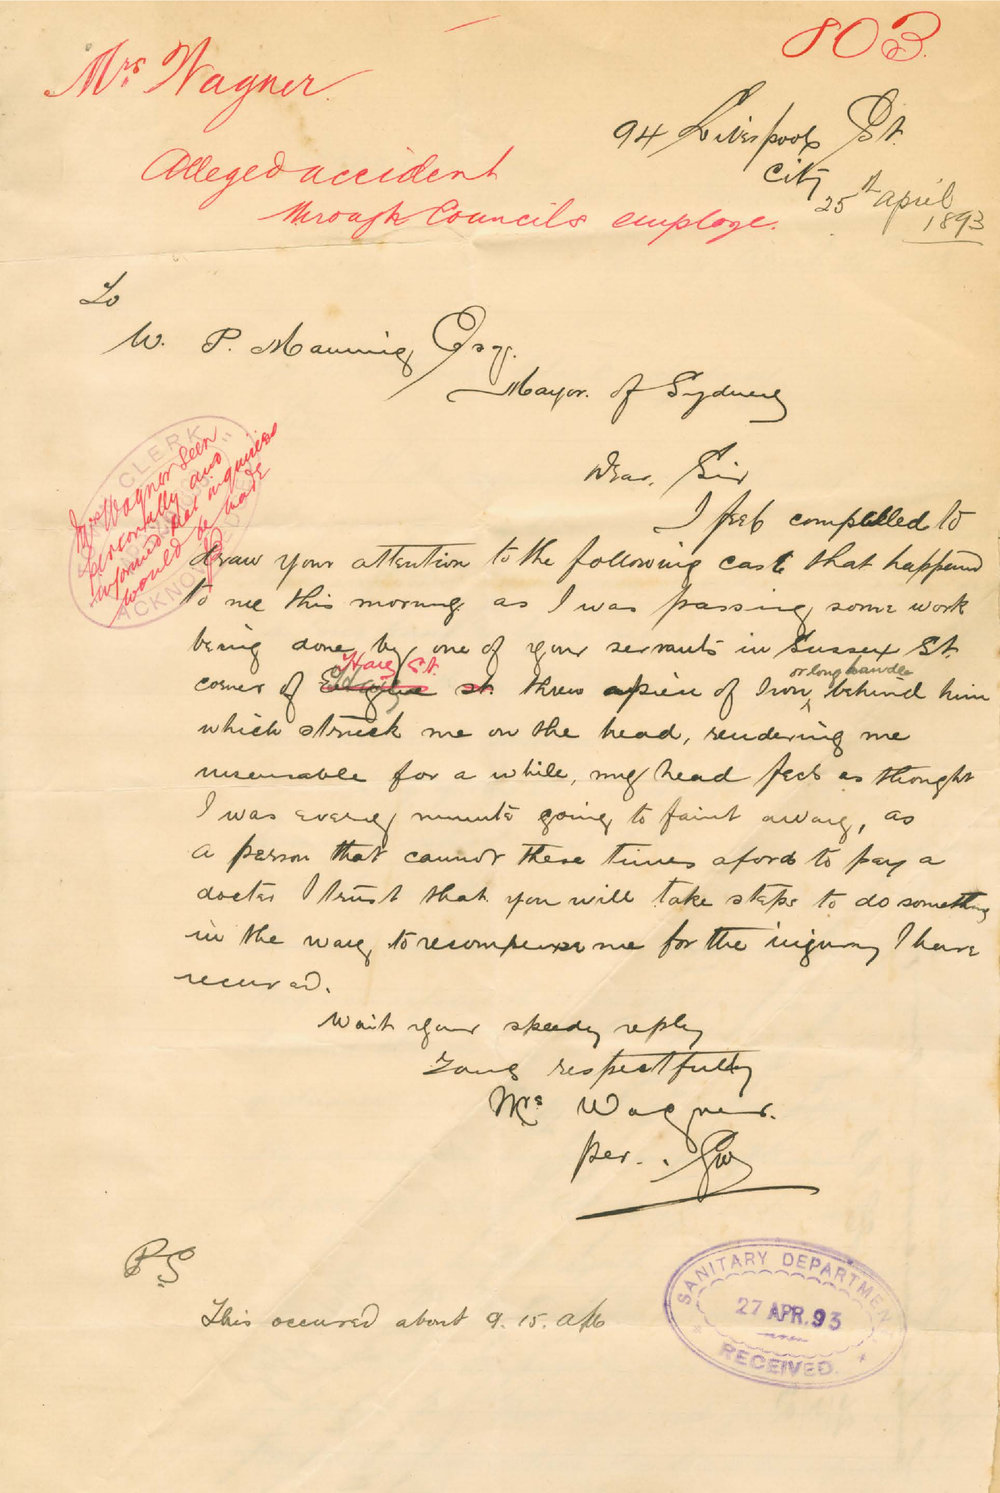 803.
Mrs Wagner
94 Liverpool St.
City
25th april
1893
Alleged accident
through Councils employe.
To
W. P. Manning Esq.
Mayor. of Sydney
CLERK
ACKNOWLEDGED
Mrs Wagner seen
personally and
informed that inquiries
would be made
Dear. Sir
I feel compelled to
draw your attention to the following case that happend
to me this morning as I was passing some work
being done by one of your servants in Sussex St.
Hay St.
or long handle
corner of st threw a piece of Iron behind him
which struck me on the head, rendering me
miserable for a while, my head feels as thought
I was every minute going to faint away, as
a person that cannot these times aford to pay a
doctor I trust that you will take steps to do something
in the way to recompense me for the injury I have
recived.
Wait your speedy reply
Yours respectfully
Mrs Wagner.
per. GW
PS
This occured about 9. 15. am
SANITARY DEPARTMENT
27 APR. 93
RECEIVED.